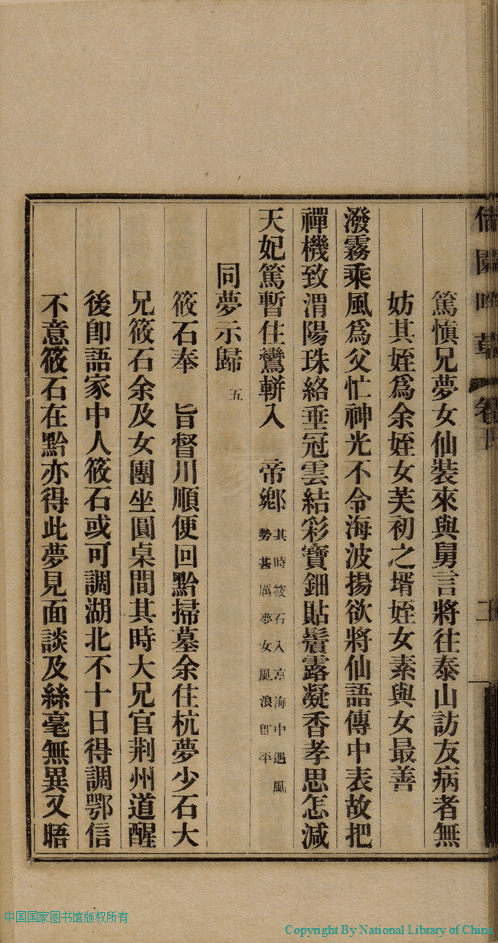 篤愼兄夢女仙裝來與舅言將往泰山訪友病者無
妨其姪爲余姪女芙初之壻姪女素與女最善
潑霧乘風爲父忙神光不令海波揚欲將仙語傳中表故把
禪機致渭陽珠絡垂冠雲結彩寶鈿貼鬢露凝香孝思怎減
天妃篤暫住鸞軿入 帝鄉其時筱石入京海中遇風勢甚厲夢女風浪卽平
同夢示歸五
筱石奉 旨督川順便回黔掃墓余住杭夢少石大
兄筱石余及女團坐圓桌間其時大兄官荆州道醒
後卽語家中人筱石或可調湖北不十日得調鄂信
不意筱石在黔亦得此夢見面談及絲毫無異又晤
中国国家图书馆版权所有
Copyright By National Library of China